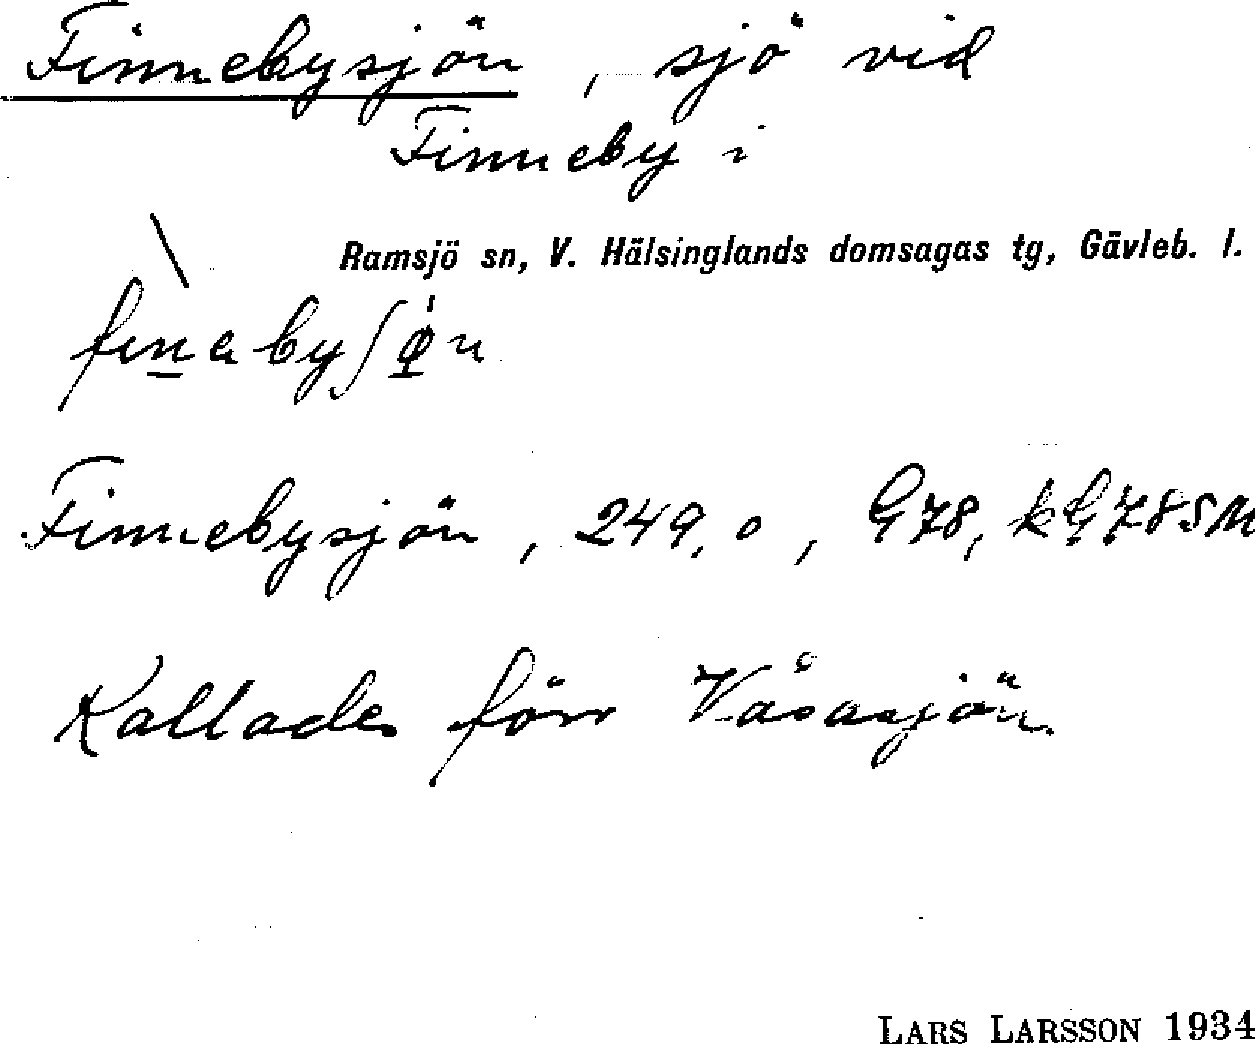 Finnebysjön, sjö vid
Finneby i
Ramsjö sn, V. Hälsinglands domsagas tg, Gävleb. l.
Finnebysjön, 249,0, G78, kG78SM
Kallades förr Våsasjön.
LARS LARSSON 1934